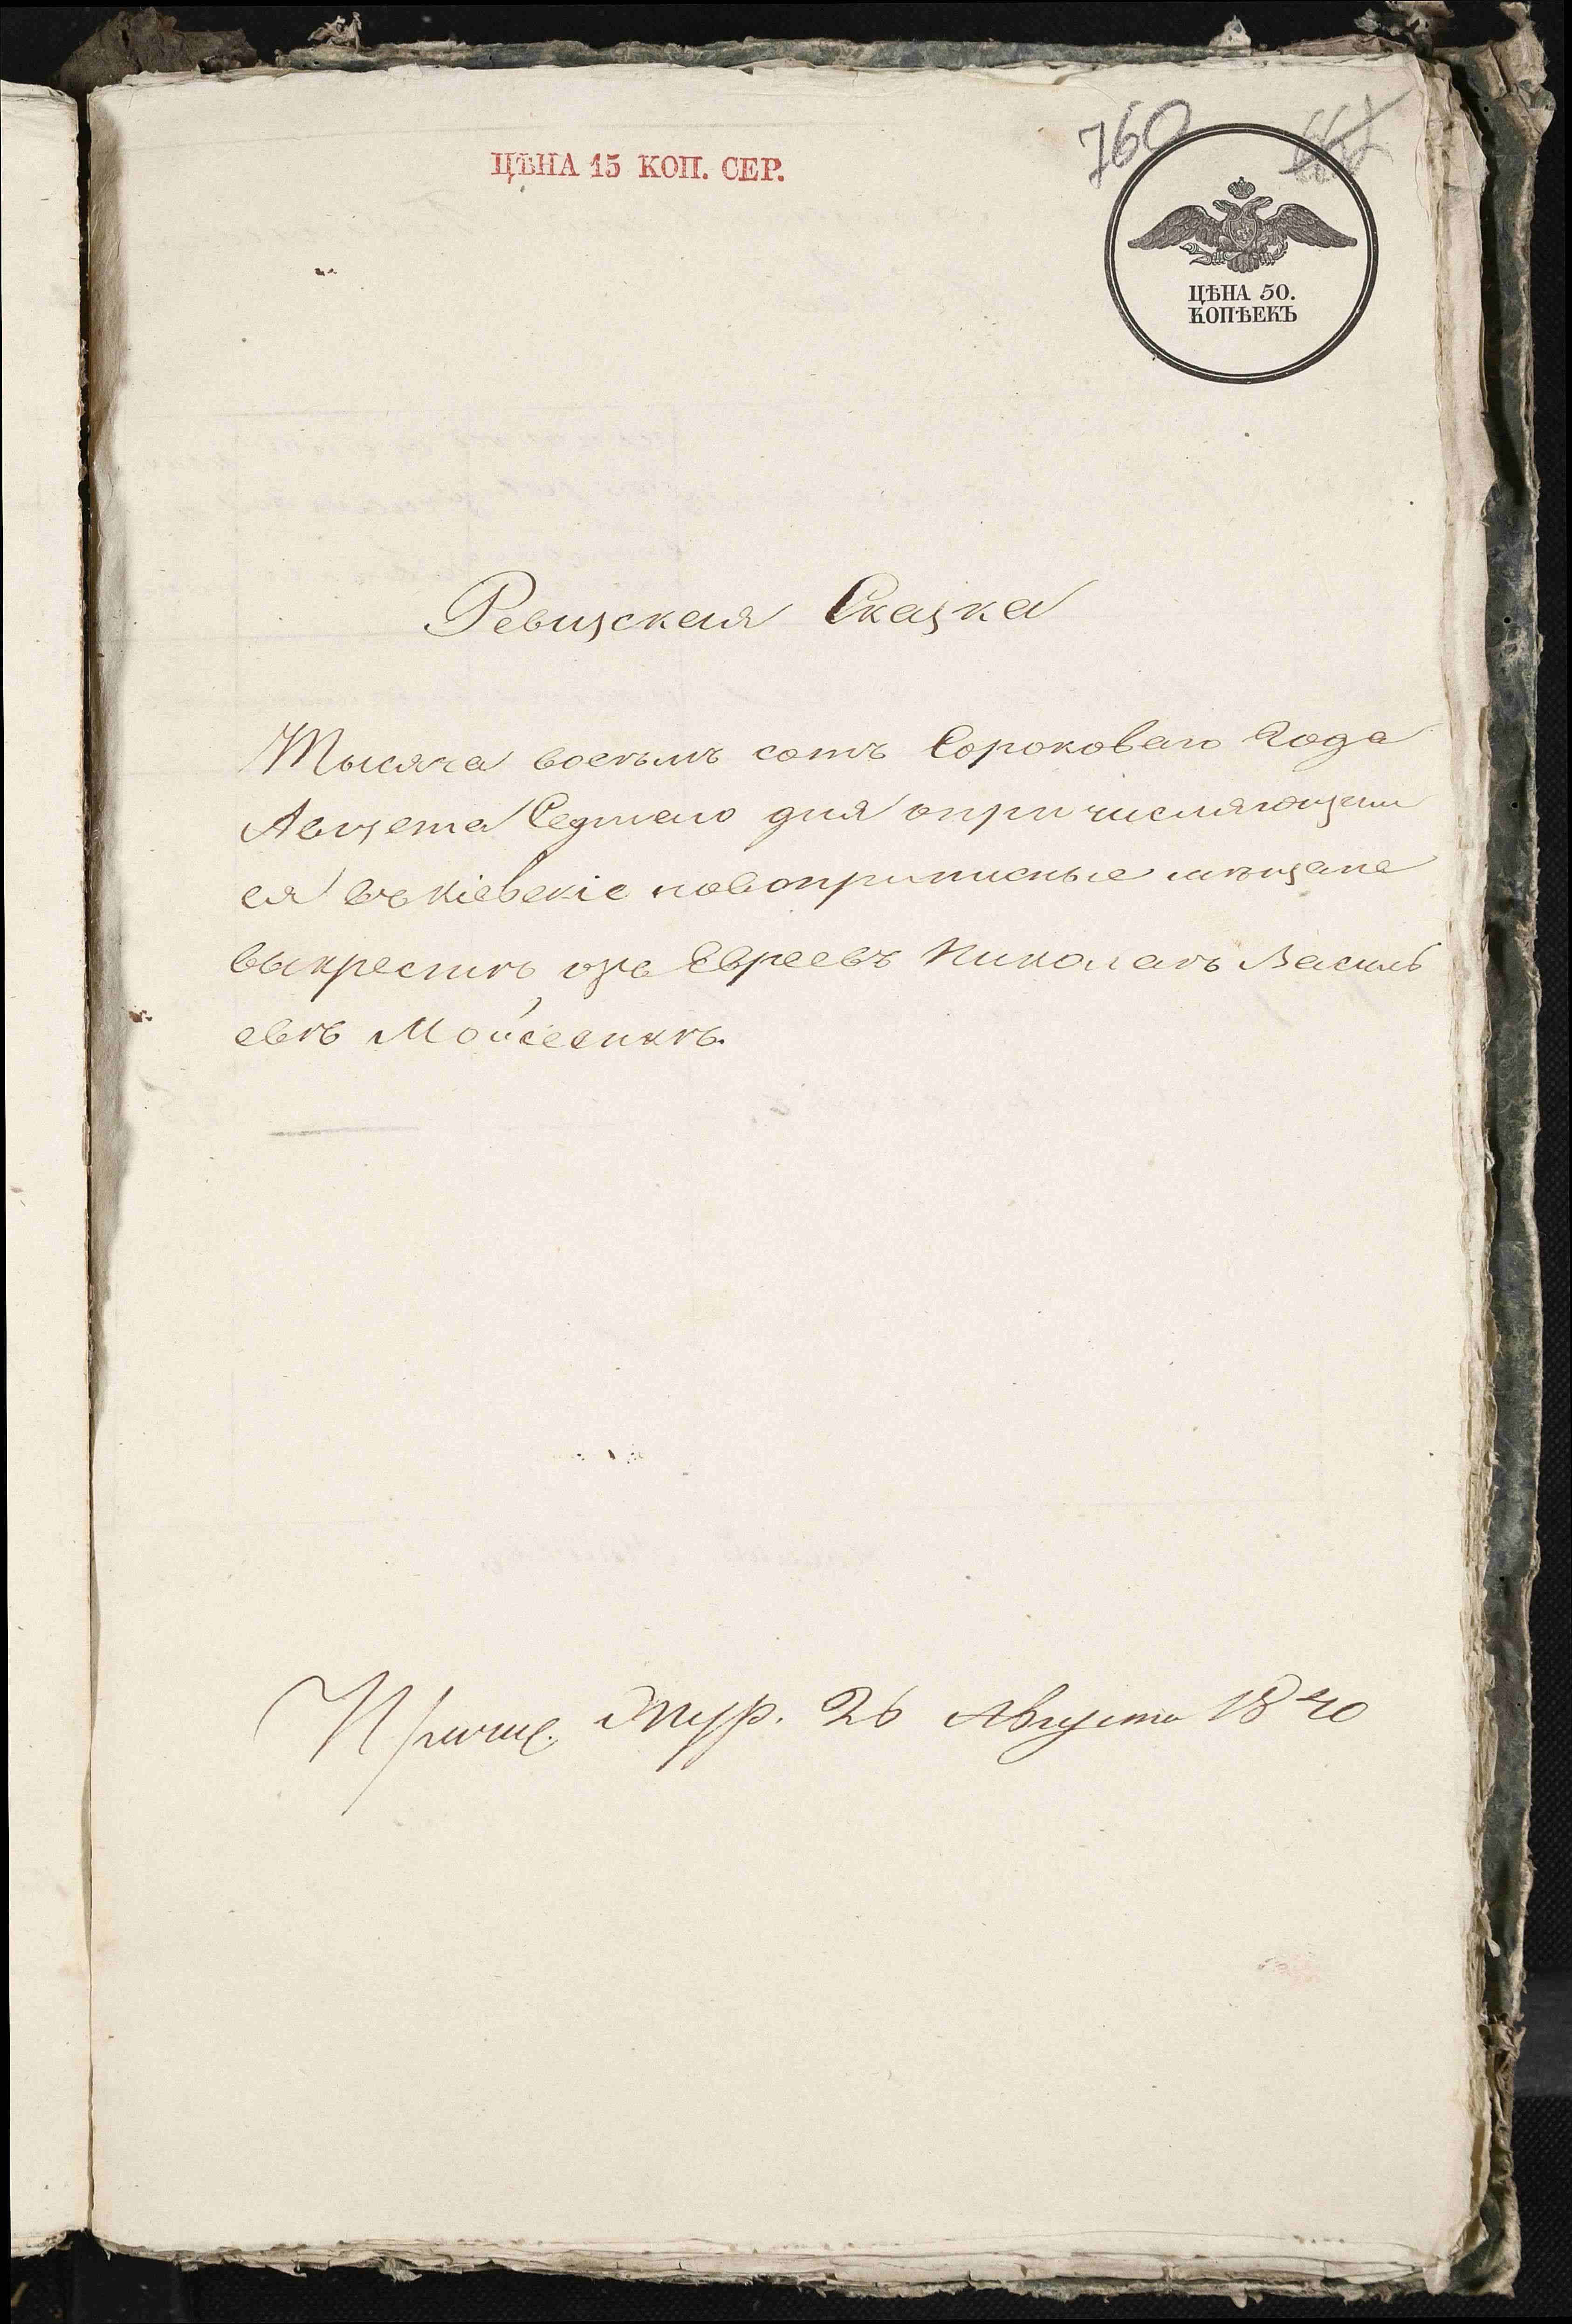 760
ЦѢНА 15 КОП. СЕР.
ЦѢНА 50.
КОПѢЕКЪ
Ревизская Сказка
Тысяча восемъ сотъ Сороковаго Года
Августа Седмаго дня опричисляющим
ся въ Кіевскіе новоприписные мѣщане
выкрестѣ изъ Евреевъ Николаѣ Василь
евѣ Мойсеенкѣ.
Жур. 26 Августа 1840